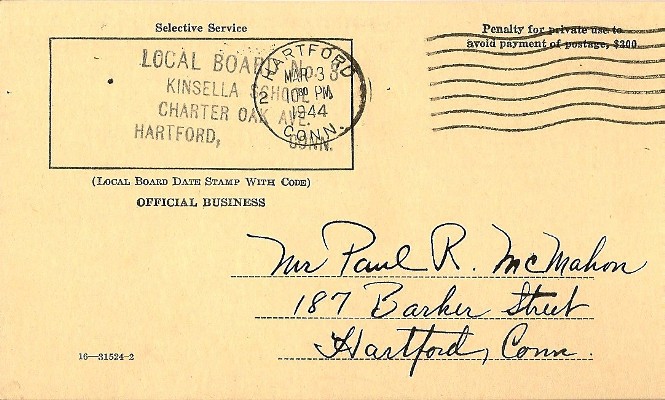 Selective Service
Penalty for private use to
avoid payment of postage, $300.
LOCAL BOARD No. 3
KINSELLA SCHOOL
CHARTER OAK AVE.
HARTFORD, CONN.
HARTFORD
MAR 3
PM
1944
CONN.
2
(Local Board Date Stamp With Code)
OFFICIAL BUSINESS
Mr Paul R. McMahon
187 Barker Street
Hartford, Conn.
16—31524-2